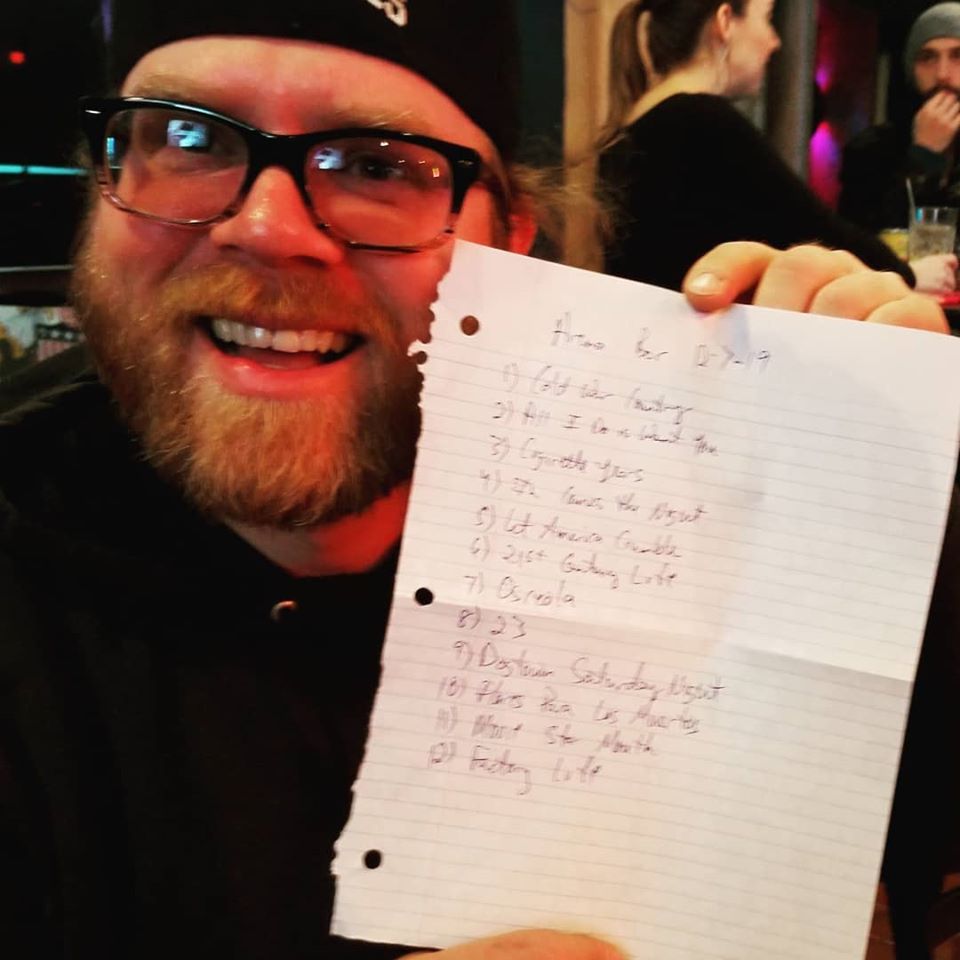 Bar 12-7-19
1) Cold War Country
2) All I Do is Want You
3) Cigarette Years
4) In Comes the Night
5) Let America Crumble
6) 21st Century Life
7) Osceola
8) 23
9) Dogtown Saturday Night
10) Flores Para Los Muertos
11) Movie Star Mouth
12) Factory Life